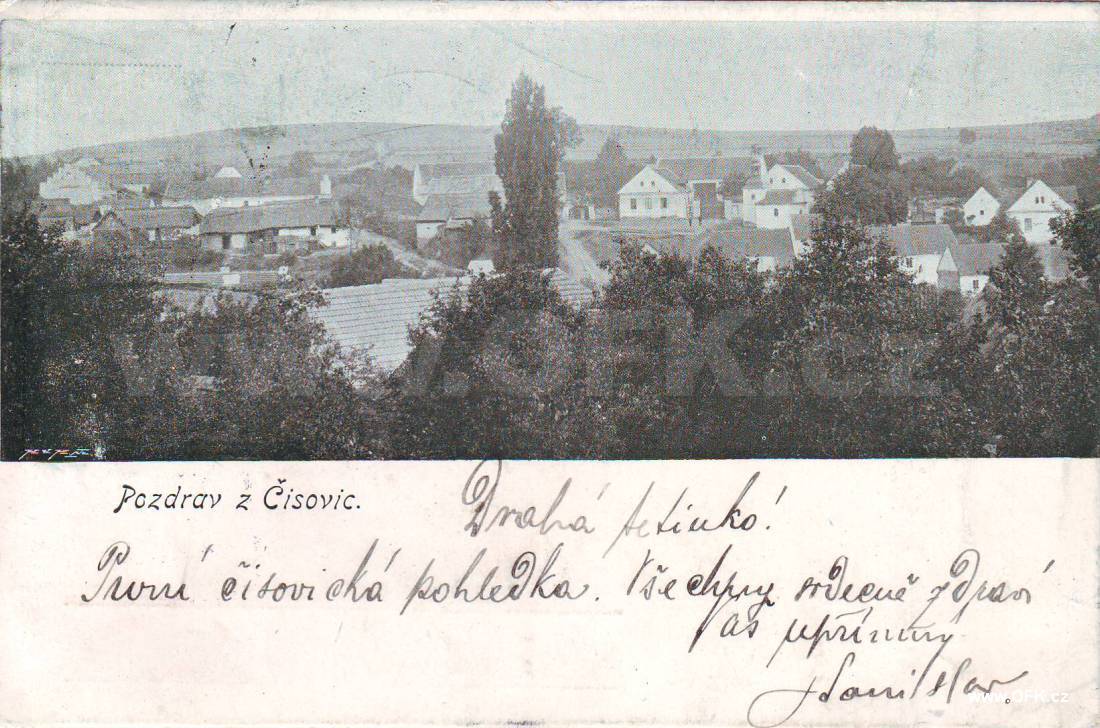 www.OFK.cz
Pozdrav z Čisovic.
Drahá tetinko!
První čisovická pohledka. Všechny srdečně zdraví
Vás upřímný
Stanislav.
www.OFK.cz